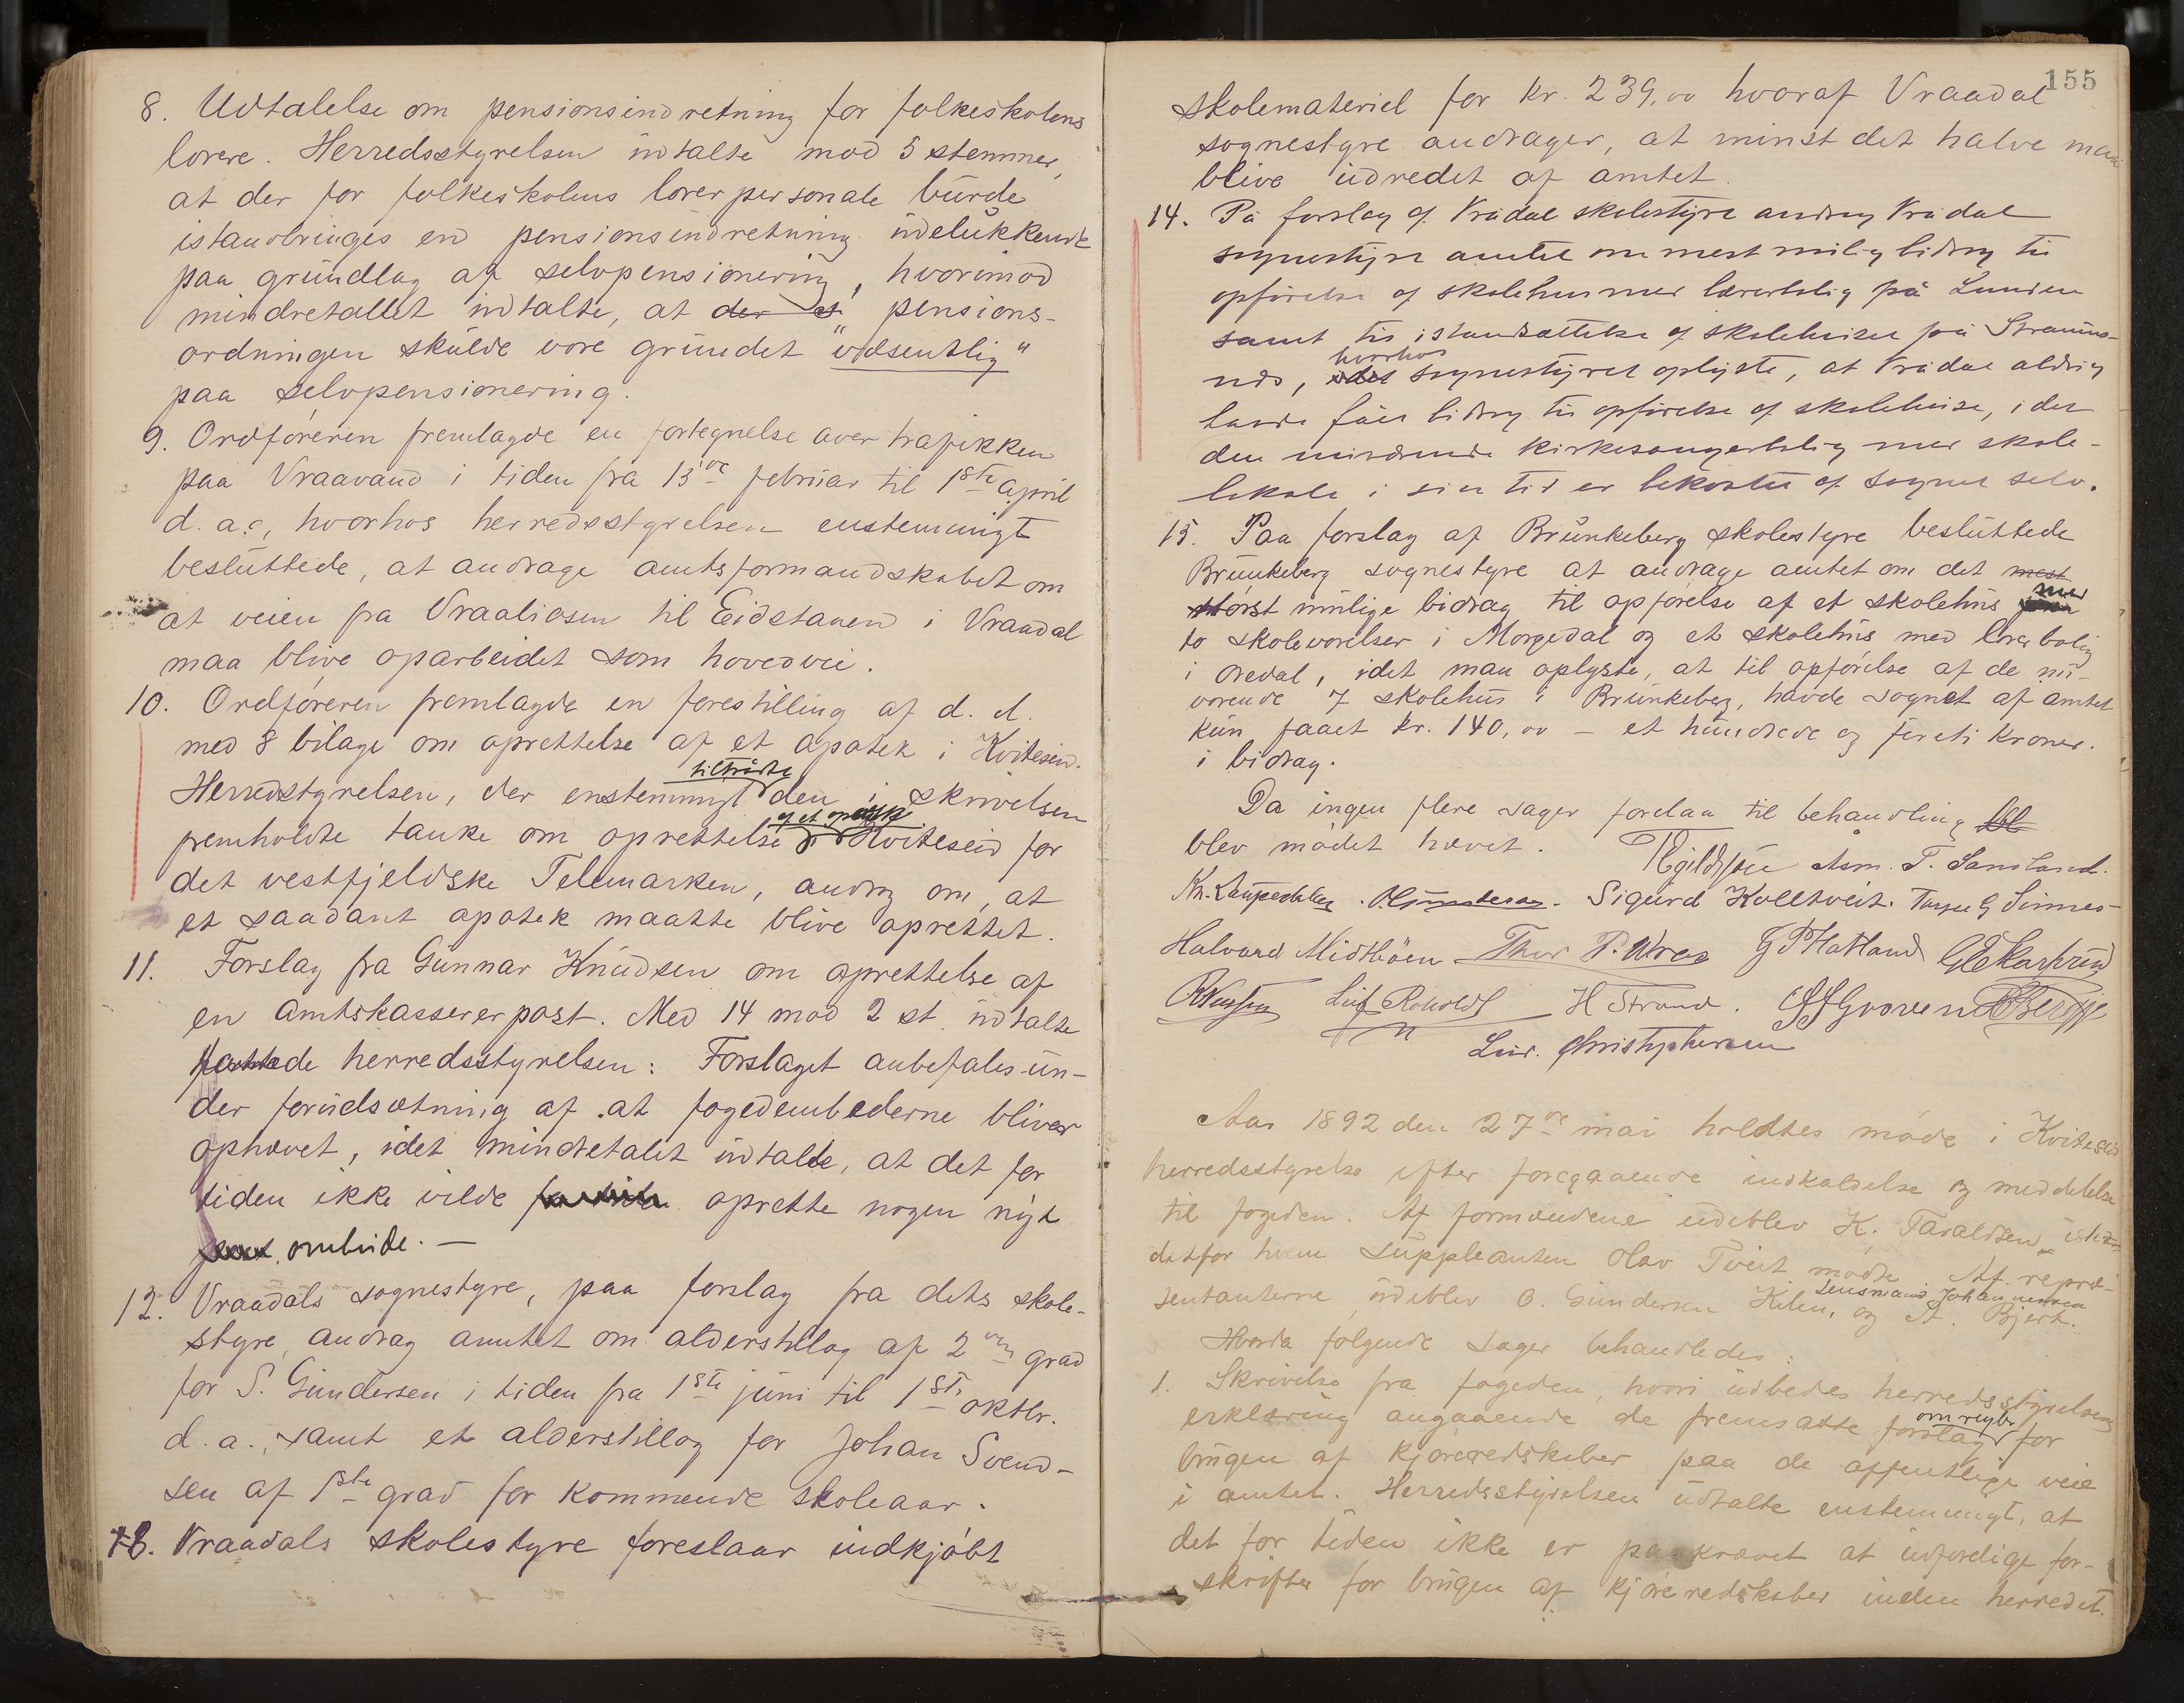 8. Udtalelse om pensionsindretning for folkeskolens
lærere. Herredsstyrelsen udtalte mod 5 stemmer,
at der for folkeskolens lærerpersonale burde
istandbringes en pensionsindretning udelukkende
paa grundlag af selvpensionering, hvorimod
mindretallet udtalte, at der et pensions-
ordningen skulde være grundet "væsentlig"
paa selvpensionering.
9. Ordføreren fremlagde en fortegnelse over trafikken
paa Vraavand i tiden fra 13de februar til 1ste april
d. a., hvorhos herredsstyrelsen enstemmigt
besluttede, at andrage amtsformandskabet om
at veien fra Vraaliosen til Eidstauen i Vraadal
maa blive oparbeidet som hovedvei.
10. Ordføreren fremlagde en forestilling af d. d.
med 8 bilage om oprettelse af et apotek i Kviteseid.
tiltrådte
Herredstyrelsen, der enstemmigt den i skrivelsen
af et apotek
fremholdte tanke om oprettelse i Kviteseid for
det vestfjeldske Telemarken, androg om, at
et saadant apotek maatte blive oprettet.
11. Forslag fra Gunnar Knudsen om oprettelse af
en Amtskassererpost. Med 14 mod 2 st. udtalte
herredsstyrelsen: Forslaget anbefales un-
der forudsætning af at fogedembederne bliver
ophævet, idet mindretalet udtalte, at det for
tiden ikke vilde oprette nogen nyt
post ombude. —
12. Vraadals sognestyre, paa forslag fra dets skole-
styre, androg amtet om alderstillæg af 2den grad
for S. Gundersen i tiden fra 1ste juni til 1ste oktbr.
d. a., samt et alderstillæg for Johan Svend-
sen af 1ste grad for kommende skoleaar.
13. Vraadals skolestyre foreslaar indkjøbt
155
skolemateriel for kr. 239,00 hvoraf Vraadal
sognestyre andrager, at minst det halve maa
blive udredet af amtet.
14. På forslag af Vrådal skolestyre androg Vrådal
sognestyre amtet om mest mulig bidrag til
opførelse af skolehus med lærerbolig på Lunden
samt til istandsættelse af skolehuset på Straums-
hvorhos
nds, idet sognestyret oplyste, at Vrådal aldrig
havde fået bidrag til opførelse af skolehuse, idet
den nuværende kirkesangerbolig med skole-
lokale i sin tid er bekostet af sognet selv.
15. Paa forslag af Brunkeberg skolestyre besluttede
Brunkeberg sognestyre at andrage amtet om det mest
med
størst mulige bidrag til opførelse af et skolehus
to skoleværelser i Morgedal og et skolehus med lærerbolig
i Ordal, idet man oplyste, at til opførelse af de nu-
værende 7 skolehus i Brunkeberg, havde sognet af amtet
kun faaet kr. 140,00 — et hundrede og føreti kroner.
i bidrag.
Da ingen flere sager forelaa til behandling bl
blev mødet hævet. Asm. T. Sandland.
O. Gundersen. Sigurd Kolltveit. Tarjei G Sinnes
Halvard Midtbøen Thor P. Vraa G P Hatland
H Strand. Berge
Lur. Christophersen
Aar 1892 den 27de mai holdtes møde i Kviteseid
herredsstyrelse efter foregaaende indkaldelse og meddelelse
til fogeden. Af formændene udeblev K. Taraldsen, iste-
detfor hvem suppleanten Olav Tveit mødte. Af repræ-
lensmand Johannessen
sentanterne udeblev O. Gundersen Kilen, og A. Bjerk.
Hvorda følgende sager behandledes:
1. Skrivelse fra fogeden, hvori udbedes herredsstyrelsens
om regler
erklæring angaaende de fremsatte forslag for
brugen af kjøreredskaber paa de offentlige veie
i amtet. Herredsstyrelsen udtalte enstemmigt, at
det for tiden ikke er paakrævet at udfærdige for-
skrifter for brugen af kjøreredskaber inden herredet.